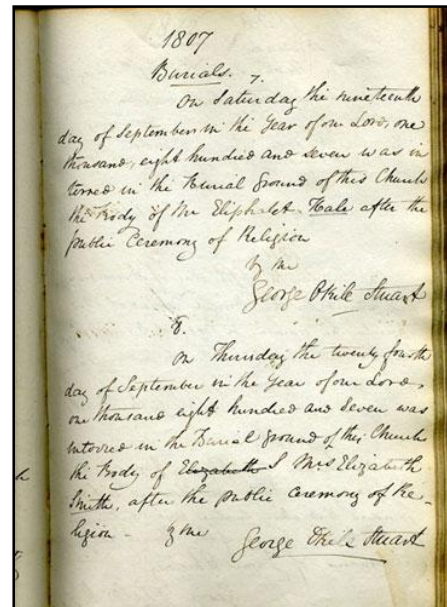 1807
Burials. 7.
On Saturday the nineteenth
day of September in the Year of our Lord, one
thousand, eight hundred and seven was in
terred in the Burial Ground of this Church
the Body of Mr Eliphalet Hale after the
public Ceremony of Religion
by me
George Okile Stuart
8.
On Thursday the twenty fourth
day of September in the Year of our Lord,
one thousand eight hundred and Seven was
interred in the Burial Ground of this Church
the Body of Elizabeth S Mrs Elizabeth
Smith, after the public Ceremony of Re-
ligion - by me
George Okile Stuart